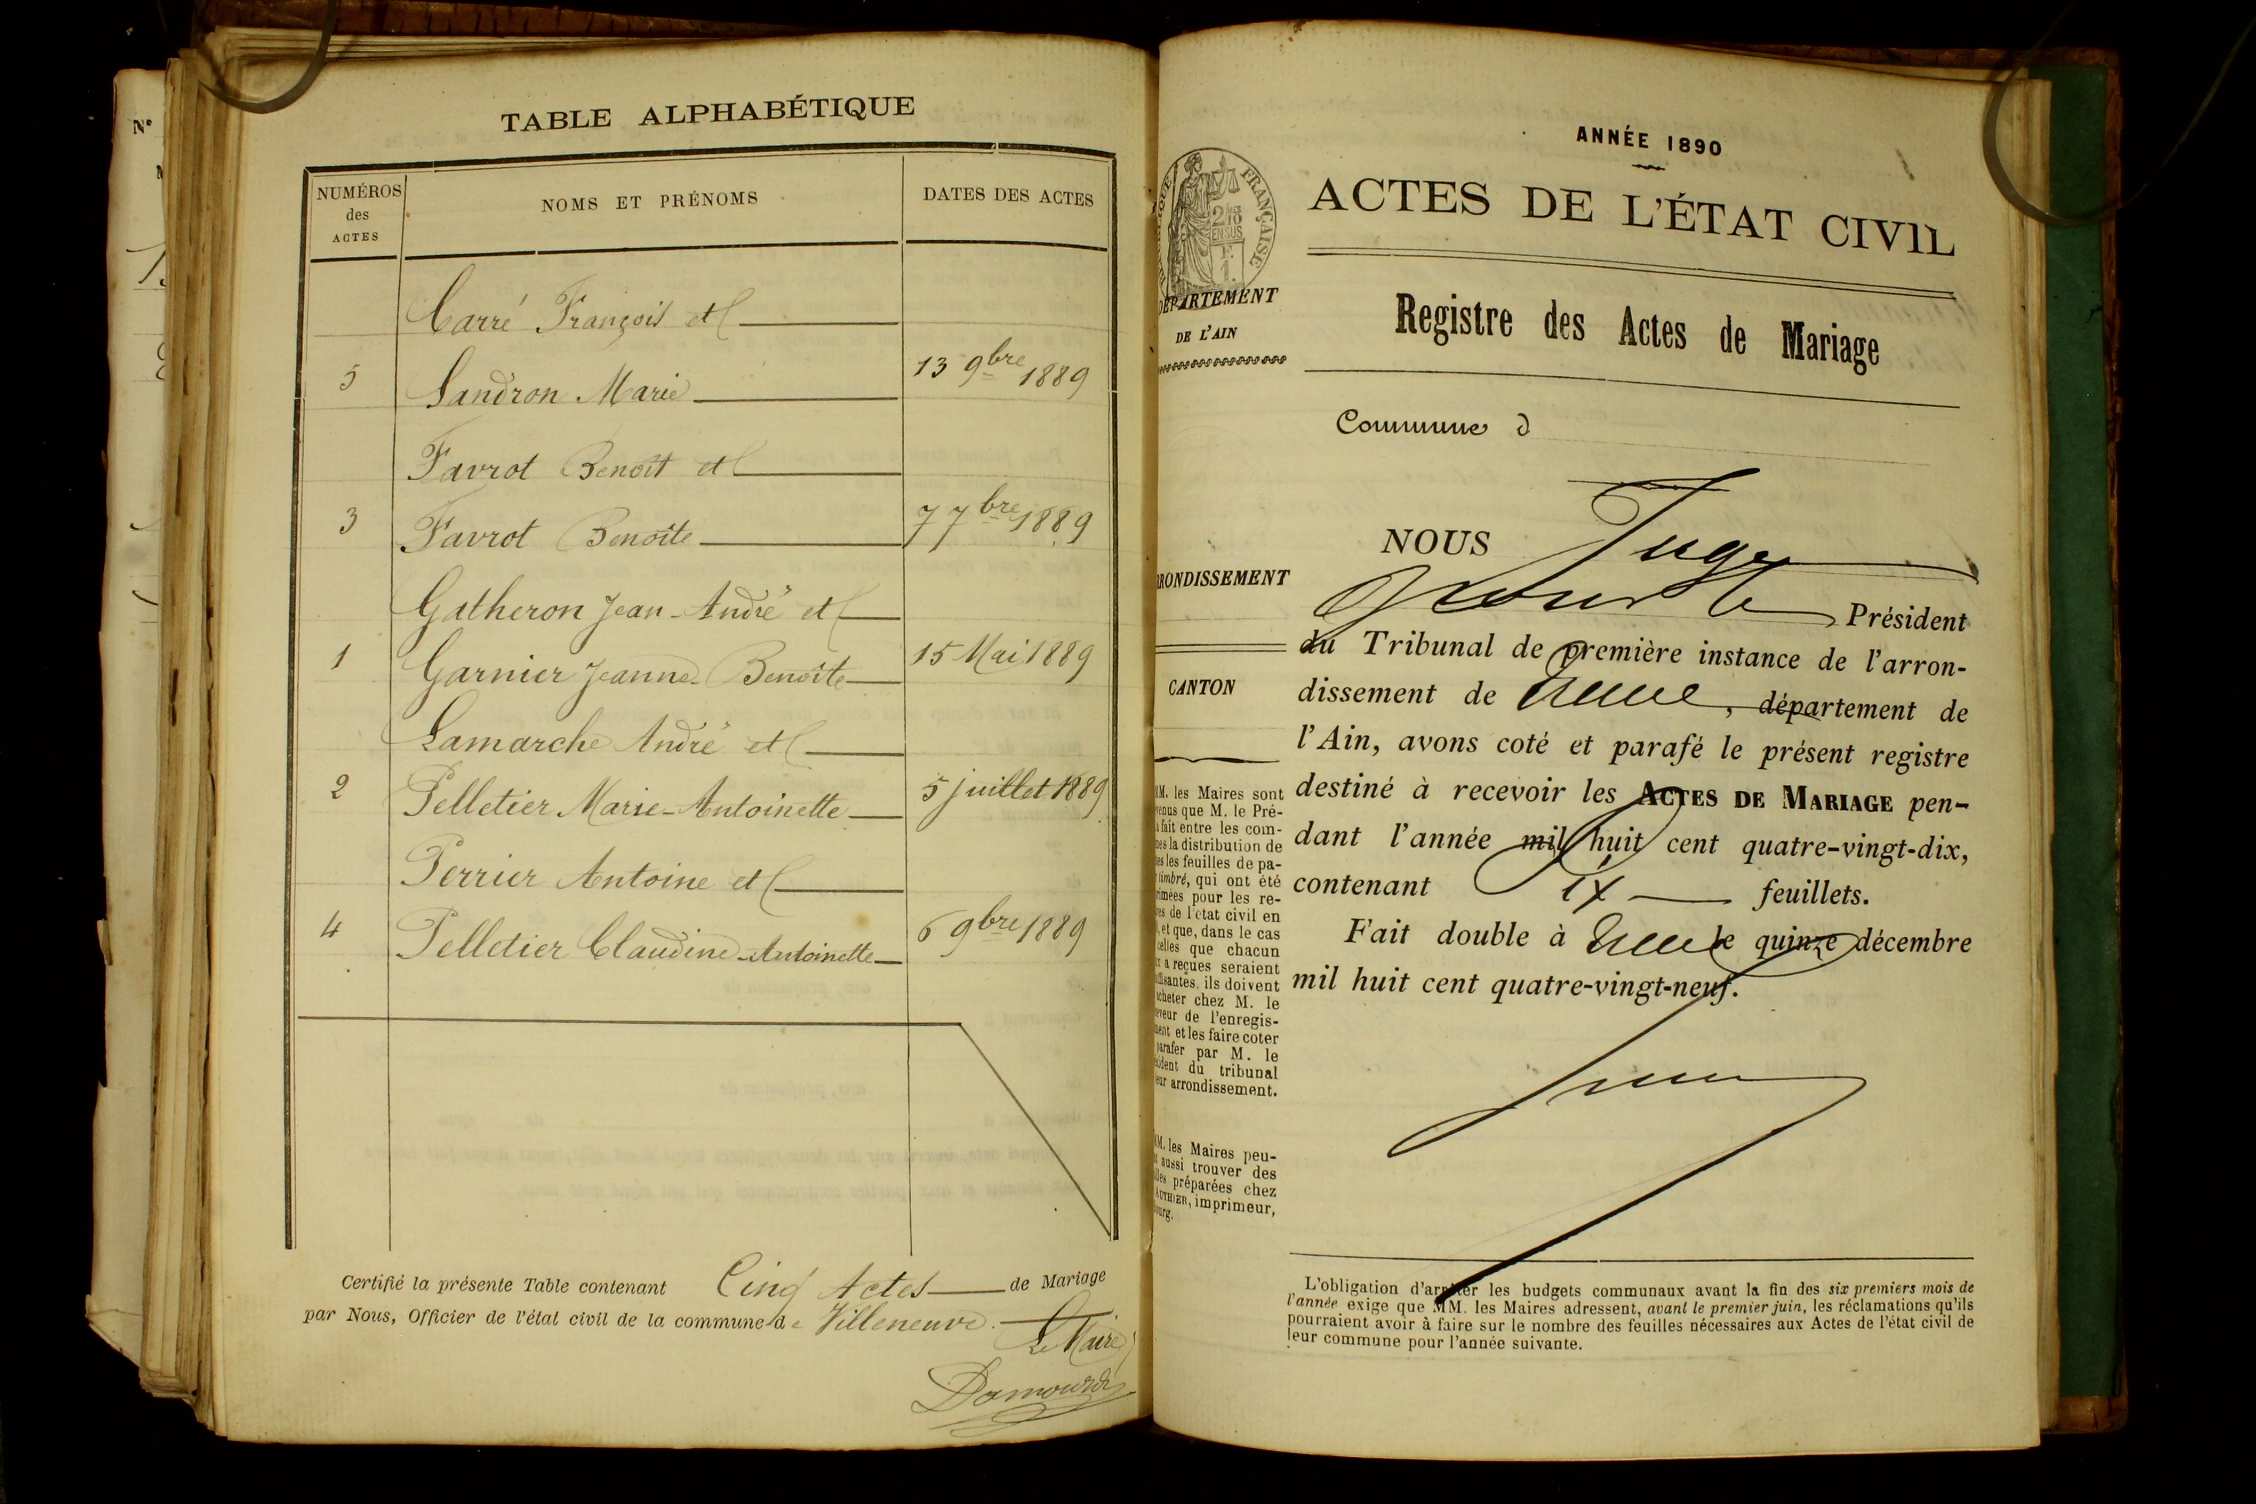 N°
TABLE ALPHABÉTIQUE
NUMÉROS
des
ACTES
NOMS ET PRÉNOMS
DATES DES ACTES
Carré François et
5 Sandron Marie 13 9bre 1889
Favrot Benoît et
3 Favrot Benoîte 7 7bre 1889
Gatheron Jean-André et
1 Garnier Jeanne-Benoîte 15 Mai 1889
Lamarche André et
2 Pelletier Marie-Antoinette 5 juillet 1889
Perrier Antoine et
4 Pelletier Claudine-Antoinette 6 9bre 1889
Certifié la présente Table contenant Cinq Actes de Mariage
par Nous, Officier de l'état civil de la commune de Villeneuve.
Le Maire
ANNÉE 1890
ACTES DE L'ÉTAT CIVIL
FRANÇAISE
DÉPARTEMENT
DE L'AIN
Registre des Actes de Mariage
Commune d
NOUS Juge
Président
RONDISSEMENT
du Tribunal de première instance de l'arron-
CANTON
dissement de , département de
l'Ain, avons coté et parafé le présent registre
destiné à recevoir les ACTES DE MARIAGE pen-
dant l'année mil huit cent quatre-vingt-dix,
contenant feuillets.
Fait double à le quinze décembre
mil huit cent quatre-vingt-neuf.
MM. les Maires sont
venus que M. le Pré-
fait entre les com-
nes la distribution de
es les feuilles de pa-
timbré, qui ont été
rimées pour les re-
res de l'état civil en
, et que, dans le cas
celles que chacun
x a reçues seraient
ffisantes, ils doivent
acheter chez M. le
eveur de l'enregis-
ment et les faire coter
parafer par M. le
sident du tribunal
eur arrondissement.
MM. les Maires peu-
aussi trouver des
lles préparées chez
AUTHIER, imprimeur,
ourg.
L'obligation d'arrêter les budgets communaux avant la fin des six premiers mois de
l'année exige que MM. les Maires adressent, avant le premier juin, les réclamations qu'ils
pourraient avoir à faire sur le nombre des feuilles nécessaires aux Actes de l'état civil de
leur commune pour l'année suivante.